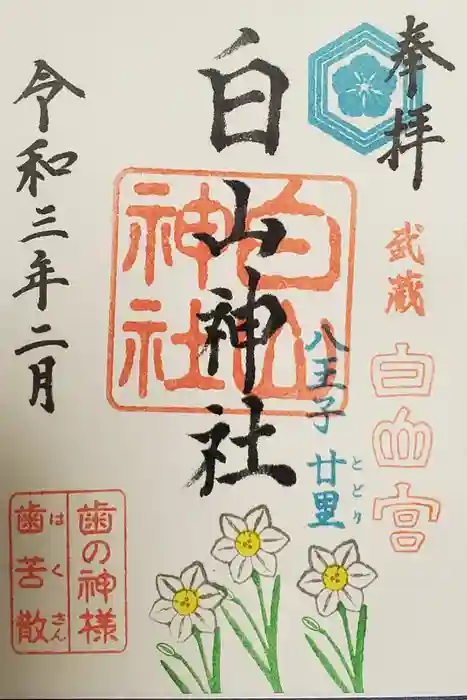 奉拝
武蔵
白山宮
八王子 廿里
とどり
白山神社
白山
神社
令和三年二月
歯の神様
歯苦散
はくさん